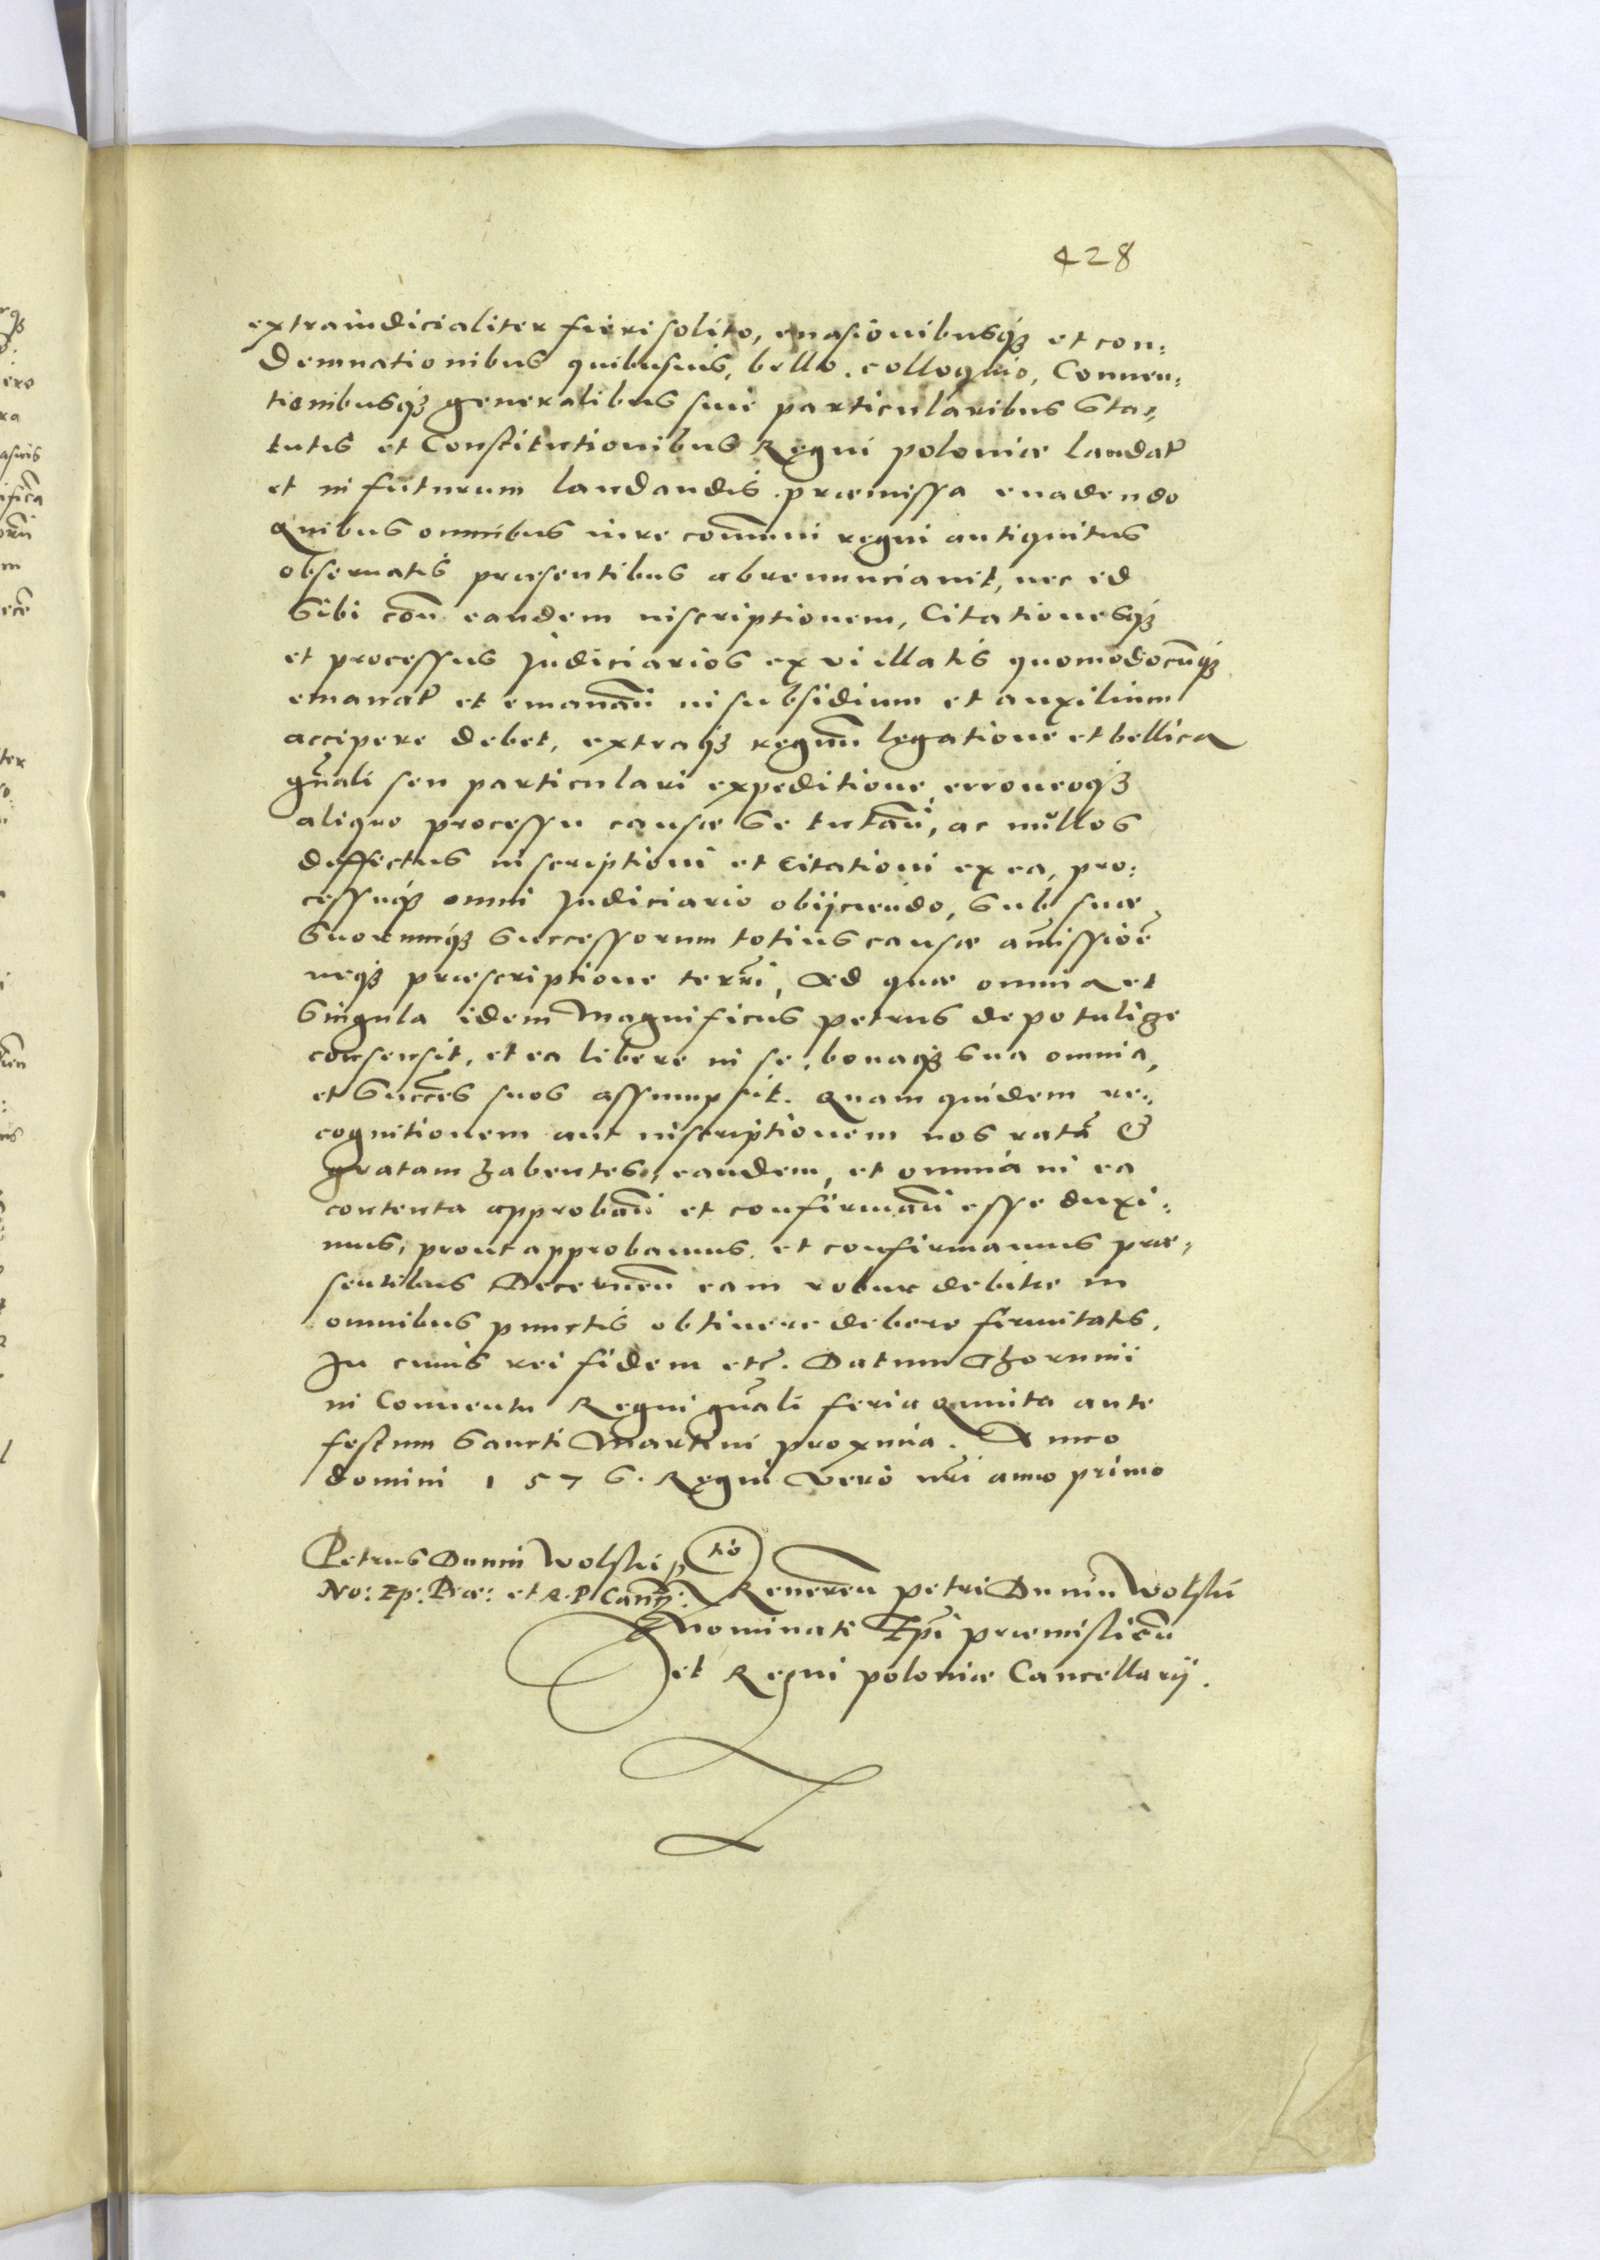 428
extraiudicialiter fieri solito, euasionibusq̃ et con:
demnationibus quibusuis, bello, colloquio, Conuen:
tionibusq̃ generalibus siue particularibus Sta:
tutis et Constitutionibus Regni poloniæ laudat̃
et in futurum laudandis. præmissa euadendo
Quibus omnibus iure com̃uni regni antiquitus
obseruatis præsentibus abrenunciauit, nec ed
Sibi cõn eandem inscriptionem, Citationesq̃
et processus Judiciarios ex vi illatis quomodocũq̃
emanat̃ et emanañ in subsidium et auxilium
accipere debet, extraq̃ regnũ legatione et bellica
gñali seu particulari expeditione, erroneoq̃
aliquo processu causæ se tutañ, ac nullos
deffectus inscriptioni et Citationi ex ea, pro:
cessuiq̃ omni Judiciario obijciendo, Sub suæ
Suorumq̃ Successorum totius causæ amissioẽ
neq̃ præscriptione terrĩ, Ad quæ omnia et
Singula idem Magnificus petrus de potulize
consensit, et ea libere in se, bonaq̃ sua omnia,
et Succẽs suos assumpsit. Quam quidem re:
cognitionem aut inscriptionem nos ratã &
gratam habentes, eandem, et omnia in ea
contenta approbañ et confirmañ esse duxi:
mus, prout approbamus. et confirmamus præ:
sentibus Decerneñ eam robur debitæ in
omnibus punctis obtinere debere firmitatis.
In cuius rei fidem etc̃. Datum Thorunii
in Conuentu Regni gñali feria Quinta ante
festum Sancti Martini proxima. Anno
domini 1576. Regni vero nr̃i anno primo
Petrus Dunin Wolskii
No: Ep: Præ: et R. P. Canc̃:
tio Reuereñ petri Dunin Wolskii
Nominati Ep̃i præmislieñ
et Regni poloniæ Cancellarij.